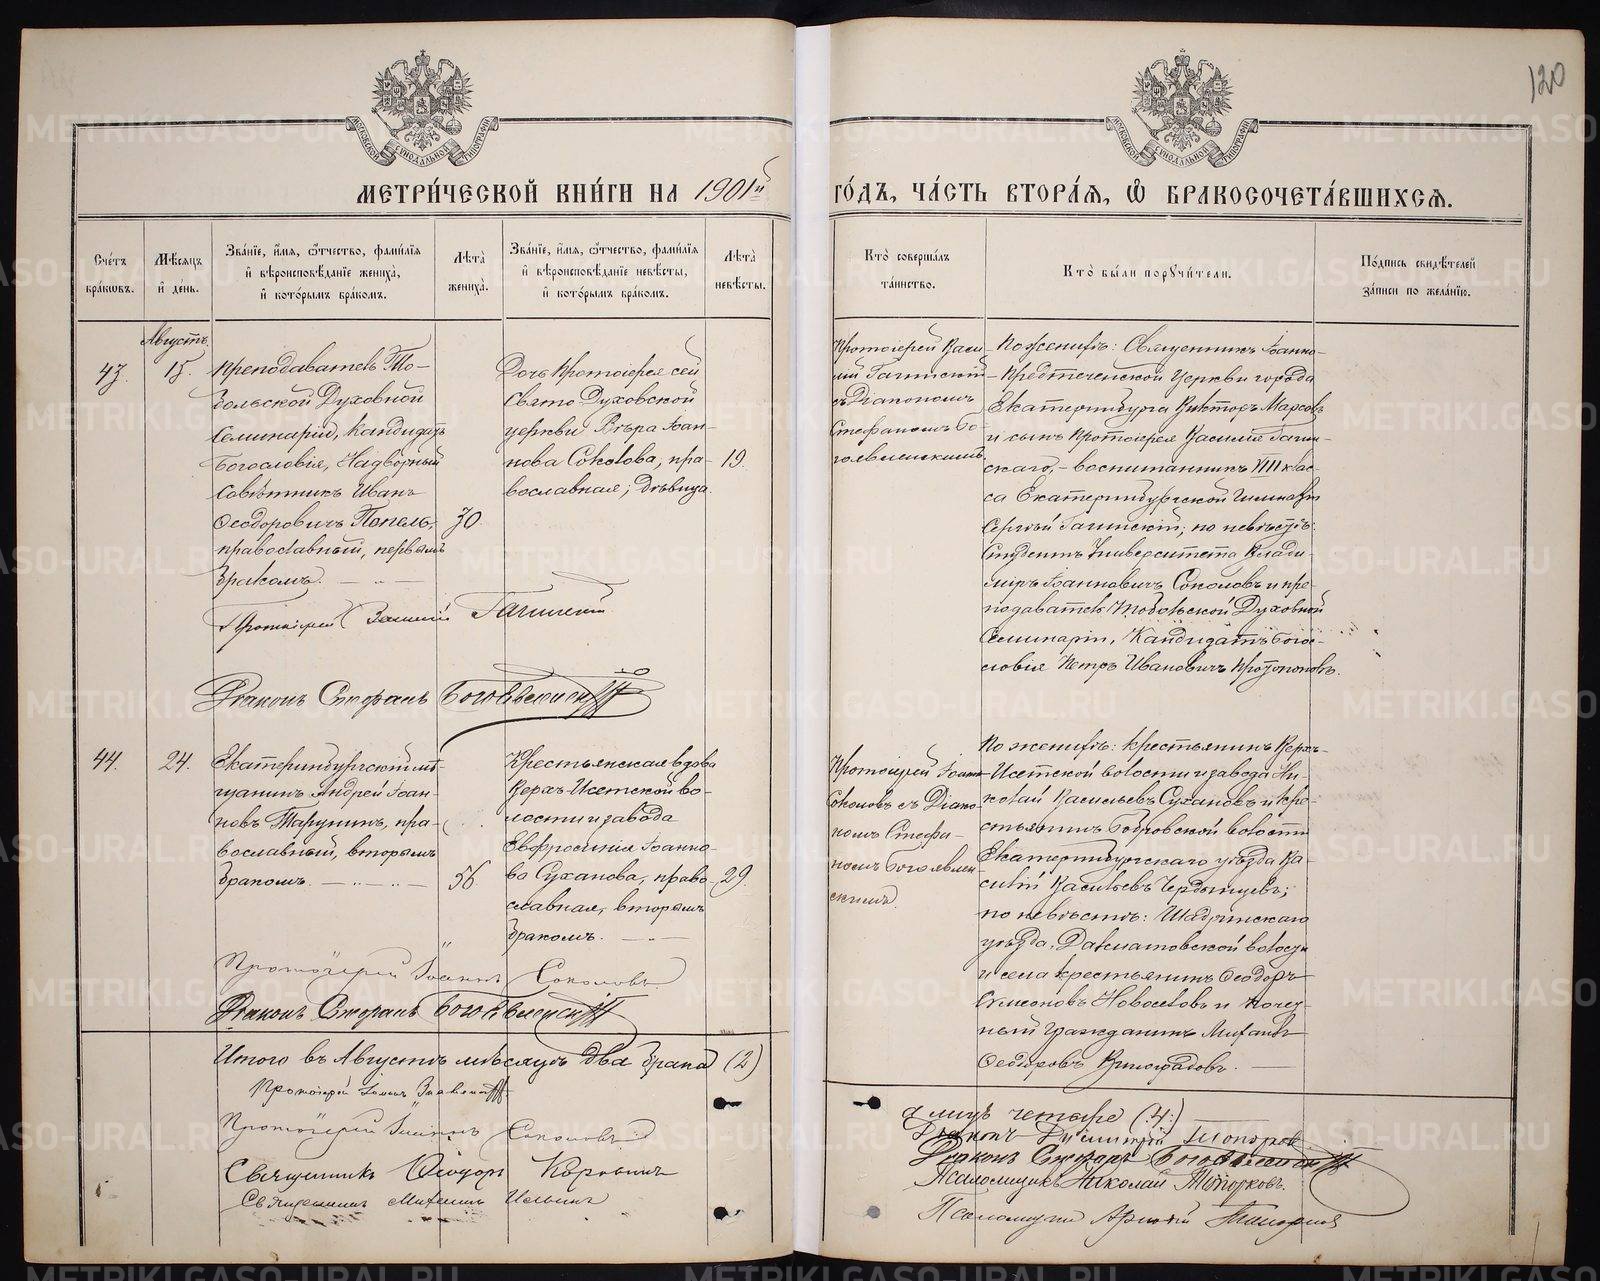 120
МОСКОВСКОЙ СѴНОДАЛЬНОЙ ТИПОГРАФІИ
МОСКОВСКОЙ СѴНОДАЛЬНОЙ ТИПОГРАФІИ
МЕТРИ́ЧЕСКОЙ КНИ́ГИ НА 1901й
ГО́ДЪ, ЧА́СТЬ ВТОРА́Я, Ѡ БРАКОСОЧЕТА́ВШИХСЯ.
Сче́тъ
бра́кѡвъ.
Мѣ́сяцъ
и҆ день.
Зва́нїе, и҆́мя, ѻ҆́тчество, фами́лїя
и҆ вѣроисповѣ́данїе жениха̀,
и҆ кото́рымъ бра́комъ.
Лѣта̀
жениха̀.
Зва́нїе, и҆́мя, ѻ҆́тчество, фами́лїя
и҆ вѣроисповѣ́данїе невѣ́сты,
и҆ кото́рымъ бра́комъ.
Лѣта̀
невѣ́сты.
Кто̀ соверша́лъ
та́инство.
Кто̀ бы́ли порꙋчи́тели.
По́дпись свидѣ́телей
за́писи по жела́нїю.
Августъ.
43.
15.
Преподаватель То-
больской Духовной
Семинаріи, Кандидатъ
Богословія, Надворный
Совѣтникъ Иванъ
Ѳеодоровичъ Попель,
православный, первымъ
бракомъ.
30.
Дочь Протоіерея сей
Свято-Духовской
церкви Вѣра Іоан-
нова Соколова, пра-
вославная; дѣвица.
19.
Протоіерей Васи-
лій Гагинскій
съ Діакономъ
Стефаномъ Бо-
гоявленскимъ.
По женихѣ: Священникъ Іоанно-
Предтеченской Церкви города
Екатеринбурга Викторъ Марсовъ
и сынъ Протоіерея Василія Гагин-
скаго, – воспитанникъ VIII клас-
са Екатеринбургской Гимназіи
Сергѣй Гагинскій; по невѣстѣ:
Студентъ Университета Влади-
миръ Іоанновичъ Соколовъ и пре-
подаватель Тобольской Духовной
Семинаріи, Кандидатъ Бого-
словія Петръ Ивановичъ
Протоіерей Василій Гагинскій
Діаконъ Стефанъ Богоявленскій
44.
24.
Екатеринбургскій мѣ-
щанинъ Андрей Іоан-
новъ Тарунинъ, пра-
вославный, вторымъ
бракомъ.
56.
Крестьянская вдова
Верхъ-Исетской во-
лости и завода
Евфросинія Іоанно-
ва Суханова, право-
славная, вторымъ
бракомъ.
29.
Протоіерей Іоаннъ
Соколовъ съ Діако-
номъ Стефа-
номъ Богоявлен-
скимъ.
По женихѣ: крестьянинъ Верхъ-
Исетской волости и завода Ни-
колай Васильевъ Сухановъ и кре-
стьянинъ Бобровской волости
Екатеринбургскаго уѣзда Ва-
силій Васильевъ Чердынцевъ;
по невѣстѣ: Шадринскаго
уѣзда, Далматовской волости
и села крестьянинъ Ѳеодоръ
Симеоновъ Новоселовъ и почет-
ный гражданинъ Михаилъ
Ѳеодоровъ Виноградовъ.
Протоіерей Іоаннъ Соколовъ
Діаконъ Стефанъ Богоявленскій
Итого въ Августѣ мѣсяцѣ два брака (2)
а лицъ четыре (4.)
Протоіерей Іоаннъ
Протоіерей Іоаннъ Соколовъ
Священникъ Ѳеодоръ Коровинъ
Священникъ Михаилъ Ильинъ
Діаконъ Димитрій Топорковъ
Діаконъ Стефанъ Богоявленскій
Псаломщикъ Николай Топорковъ.
Псаломщикъ
METRIKI.GASO-URAL.RU